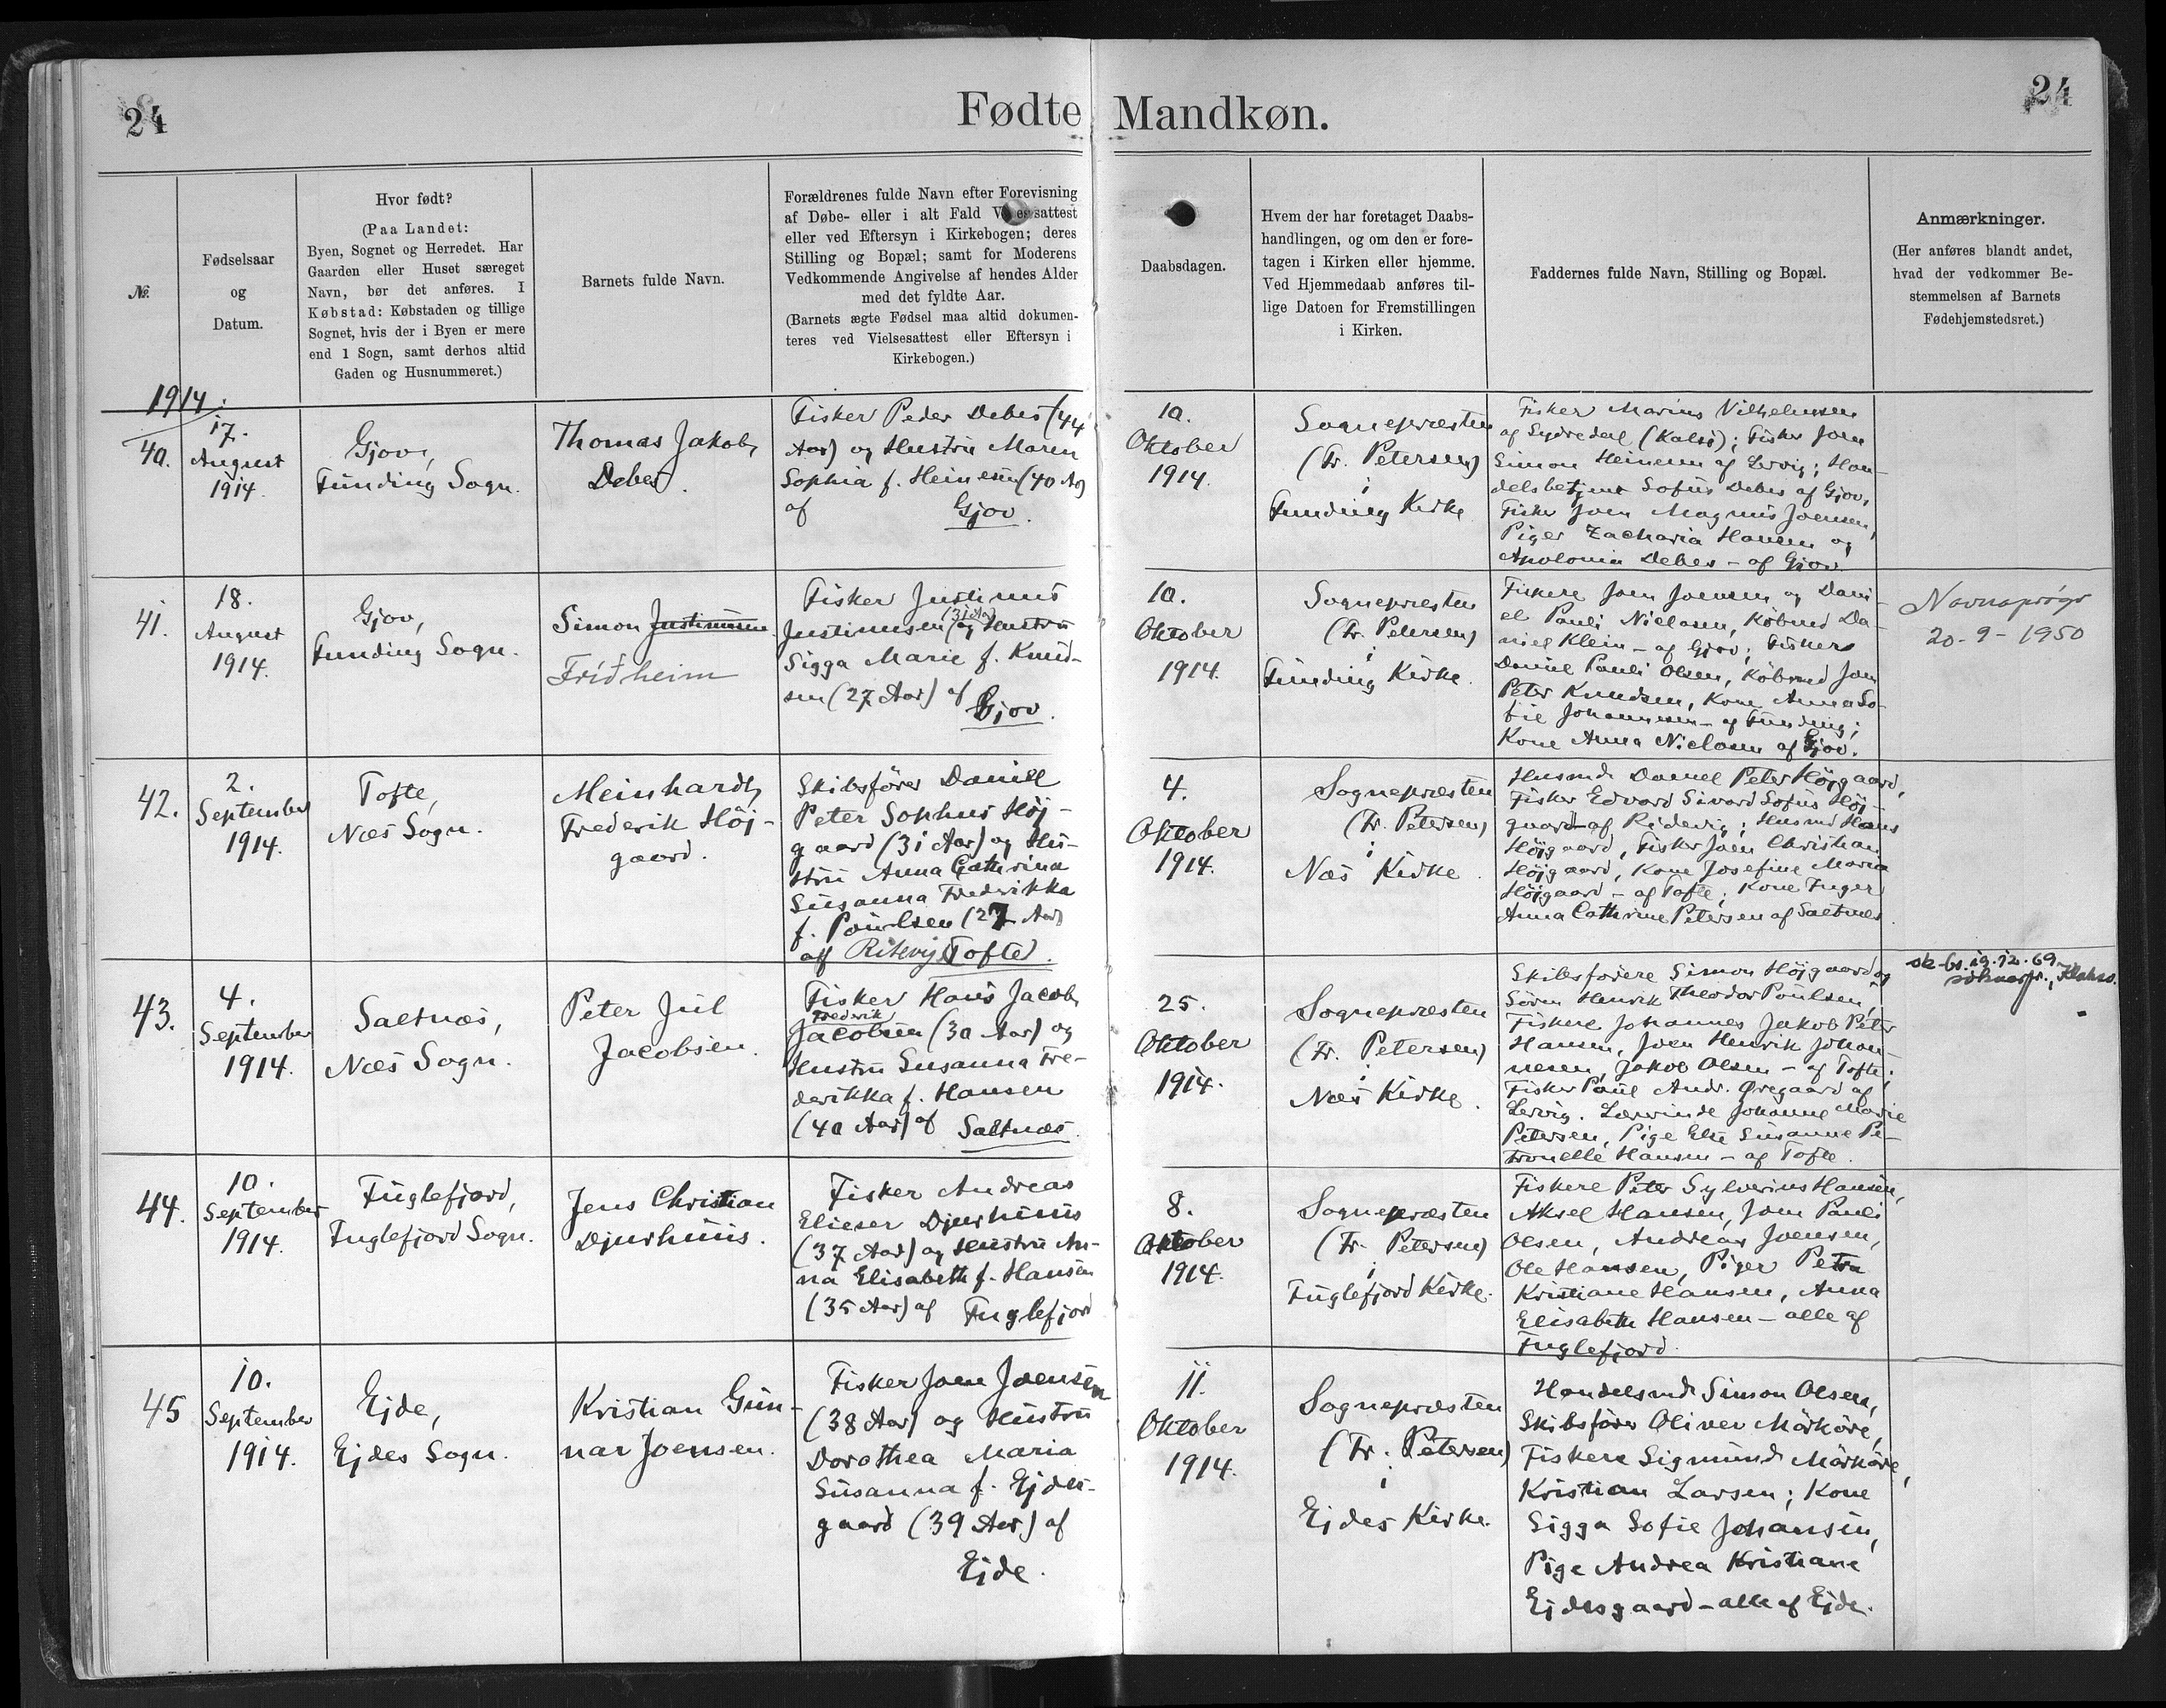 24
Fødte Mandkøn.
24
№.
Fødselsaar
og
Datum.
Hvor født?
(Paa Landet:
Byen, Sognet og Herredet. Har
Gaarden eller Huset særeget
Navn, bør det anføres. I
Købstad: Købstaden og tillige
Sognet, hvis der i Byen er mere
end 1 Sogn, samt derhos altid
Gaden og Husnummeret.)
Barnets fulde Navn.
Forældrenes fulde Navn efter Forevisning
af Døbe- eller i alt Fald V  essattest
eller ved Eftersyn i Kirkebogen; deres
Stilling og Bopæl; samt for Moderens
Vedkommende Angivelse af hendes Alder
med det fyldte Aar.
(Barnets ægte Fødsel maa altid dokumen-
teres ved Vielsesattest eller Eftersyn i
Kirkebogen.)
Daabsdagen.
Hvem der har foretaget Daabs-
handlingen, og om den er fore-
tagen i Kirken eller hjemme.
Ved Hjemmedaab anføres til-
lige Datoen for Fremstillingen
i Kirken.
Faddernes fulde Navn, Stilling og Bopæl.
Anmærkninger.
(Her anføres blandt andet,
hvad der vedkommer Be-
stemmelsen af Barnets
Fødehjemstedsret.)
1914:
40.
17.
August
1914.
Gjov,
Funding Sogn.
Thomas Jakob
Debes.
Fisker Peder Debes (44
Aar) og Hustru Maren
Sophia f. Heinesen (40 Ar)
af Gjov.
10.
Oktober
1914.
Sognepræsten
(Fr. Petersen)
i
Funding Kirke
Fisker Marius Vilhelmsen
af Sydredal (Kalsö); Fisker Joen
Simon Heinesen af Lervig; Han-
delsbetjent Sofus Debes af Gjov,
Fisker Joen Magnus Joensen,
Piger Zacharia Hansen og
Apolonia Debes - af Gjov.
41.
18.
August
1914.
Gjov,
Funding Sogn.
Simon Justinussen
Fríðheim
Fisker Justinus
Justinussen (31 Aar) og Hustru
Sigga Marie f. Knud-
sen (27 Aar) af
Gjov.
10.
Oktober
1914.
Sognepræsten
(Fr. Petersen)
i
Funding Kirke.
Fiskere Joen Joensen og Dani-
el Pauli Nielasen, Köbmd Da-
niel Klein - af Gjov; Fiskere
Daniel Pauli Olsen, Köbmd Joen
Peter Knudsen, Kone Anna So-
fie Johannesen - af Funding;
Kone Anna Nielasen af Gjov.
Navnaprógv
20-9-1950
42.
2.
September
1914.
Tofte,
Næs Sogn.
Meinhardt
Frederik Höj-
gaard.
Skibsförer Daniel
Peter Sophus Höj-
gaard (31 Aar) og Hu-
stru Anna Cathrina
Susanna Frederikka
f. Poulsen (27 Aar)
af Ritevig Tofte.
4.
Oktober
1914.
Sognepræsten
(Fr. Petersen)
i
Næs Kirke.
Husmd Daniel Peter Höjgaard,
Fisker Edvard Sivard Sofus Höj-
gaard - af Ridevig; Husmd Hans
Höjgaard, Fisker Joen Christian
Höjgaard, Kone Josefine Maria
Höjgaard - af Tofte; Kone Inger
Anna Cathrine Petersen af Saltnæs.
43.
4.
September
1914.
Saltnæs,
Næs Sogn.
Peter Jul
Jacobsen.
Fisker Hans Jacob
Frederik
Jacobsen (30 Aar) og
Hustru Susanna Fre-
derikka f. Hansen
(40 Aar) af Saltnæs.
25.
Oktober
1914.
Sognepræsten
(Fr. Petersen)
i
Næs Kirke.
Skibsförere Simon Höjgaard og
Sören Henrik Theodor Poulsen,
Fiskere Johannes Jakob Peter
Hansen, Joen Henrik Johan-
nesen, Jakob Olsen - af Tofte;
Fisker Poul Andr. Øregaard af
Lervig. Lærerinde Johanne Marie
Petersen, Pige Else Susanne Pe-
tronelle Hansen - af Tofte.
19.12.69
44.
10.
September
1914.
Fuglefjord,
Fuglefjord Sogn.
Jens Christian
Djurhuus.
Fisker Andreas
Elieser Djurhuus
(37 Aar) og Hustru An-
na Elisabeth f. Hansen
(35 Aar) af Fuglefjord
8.
Oktober
1914.
Sognepræsten
(Fr. Petersen)
i
Fuglefjord Kirke.
Fiskere Peter Sylverius Hansen,
Aksel Hansen, Joen Pauli
Olsen, Andreas Joensen,
Ole Hansen, Piger Petra
Kristiane Hansen, Anna
Elisabeth Hansen - alle af
Fuglefjord.
45
10.
September
1914.
Ejde,
Ejdes Sogn.
Kristian Gun-
nar Joensen.
Fisker Joen Joensen
(38 Aar) og Hustru
Dorothea Maria
Susanna f. Ejdes-
gaard (39 Aar) af
Ejde.
11.
Oktober
1914.
Sognepræsten
(Fr. Petersen)
i
Ejdes Kirke.
Handelsmd Simon Olsen,
Skibsförer Oliver Mörköre,
Fiskere Sigmund Mörköre,
Kristian Larsen; Kone
Sigga Sofie Johansen,
Pige Andrea Kristiane
Ejdesgaard - alle af Ejde.